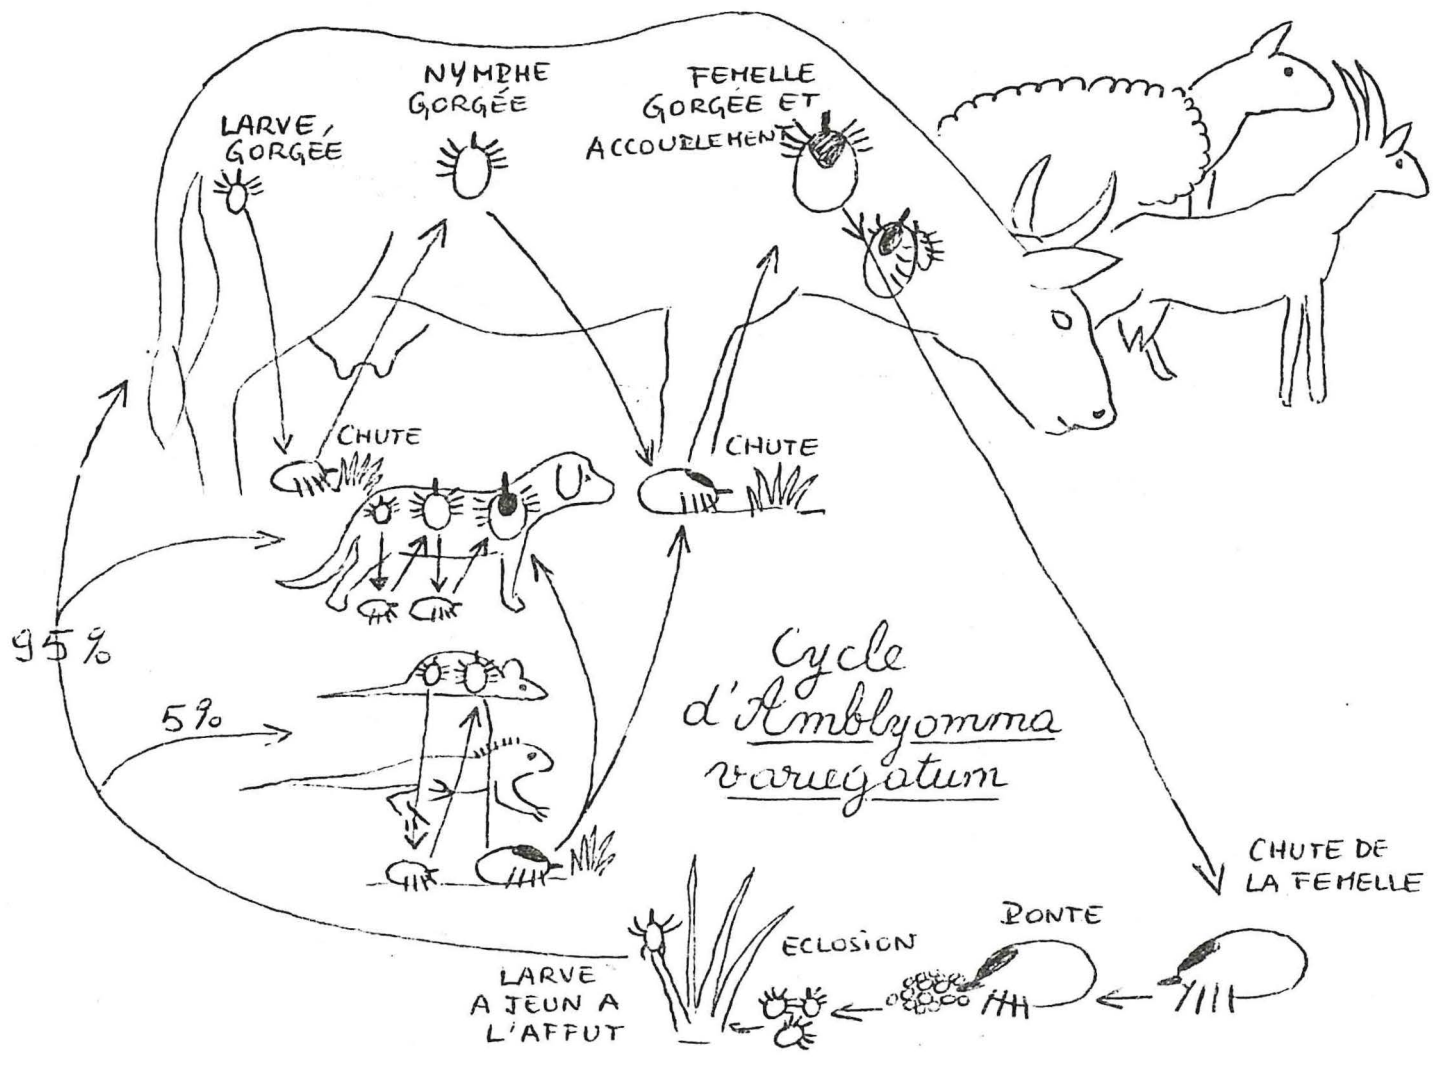 NYMPHE
GORGÉE
FEMELLE
GORGÉE ET
ACCOUPLEMENT
LARVE
GORGÉE
CHUTE
CHUTE
95%
5%
Cycle
d'Amblyomma
variegatum
CHUTE DE
LA FEMELLE
PONTE
ECLOSION
LARVE
A JEUN A
L'AFFUT